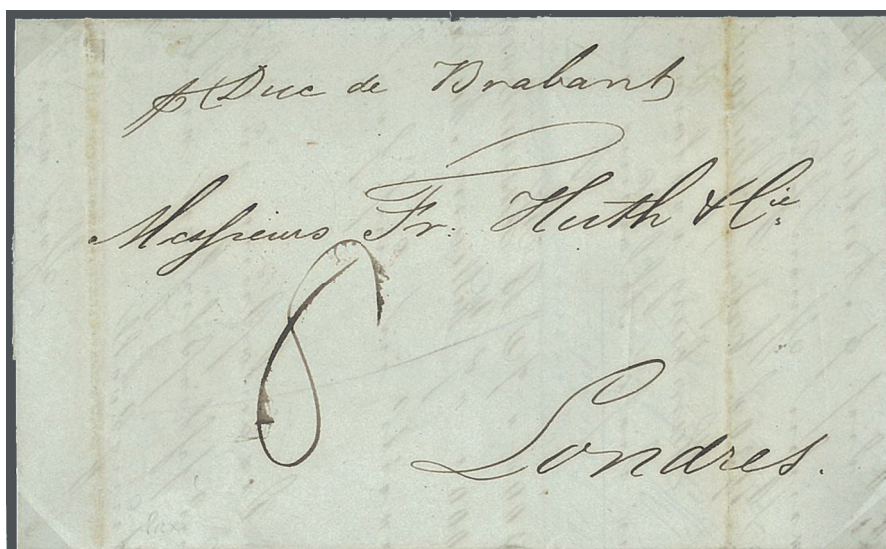 p Duc de Brabant
Messieurs Fr. Huth & Cie.
8
Londres.